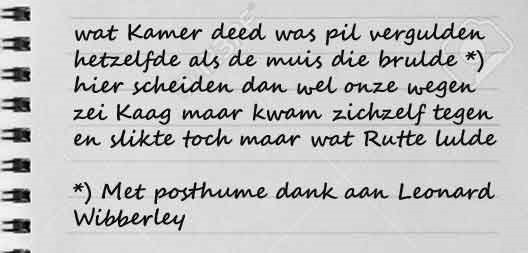 wat Kamer deed was pil vergulden
hetzelfde als de muis die brulde *)
hier scheiden dan wel onze wegen
zei Kaag maar kwam zichzelf tegen
en slikte toch maar wat Rutte lulde

*) Met posthume dank aan Leonard
Wibberley